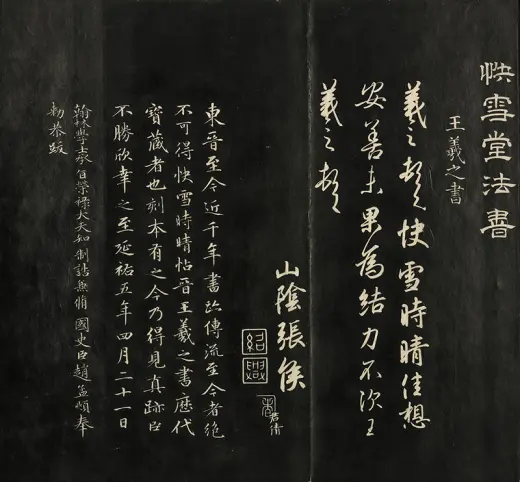 快雪堂法書
王羲之書
羲之頓首快雪時晴佳想
安善未果為結力不次王
羲之頓首
山陰張侯
紹興
君倩
東晉至今近千年書跡傳流至今者絕
不可得快雪時晴帖晉王羲之書歷代
寶藏者也刻本有之今乃得見真跡臣
不勝欣幸之至延祐五年四月二十一日
翰林學士承旨榮祿大夫知制誥兼脩國史臣趙孟頫奉
勑恭跋